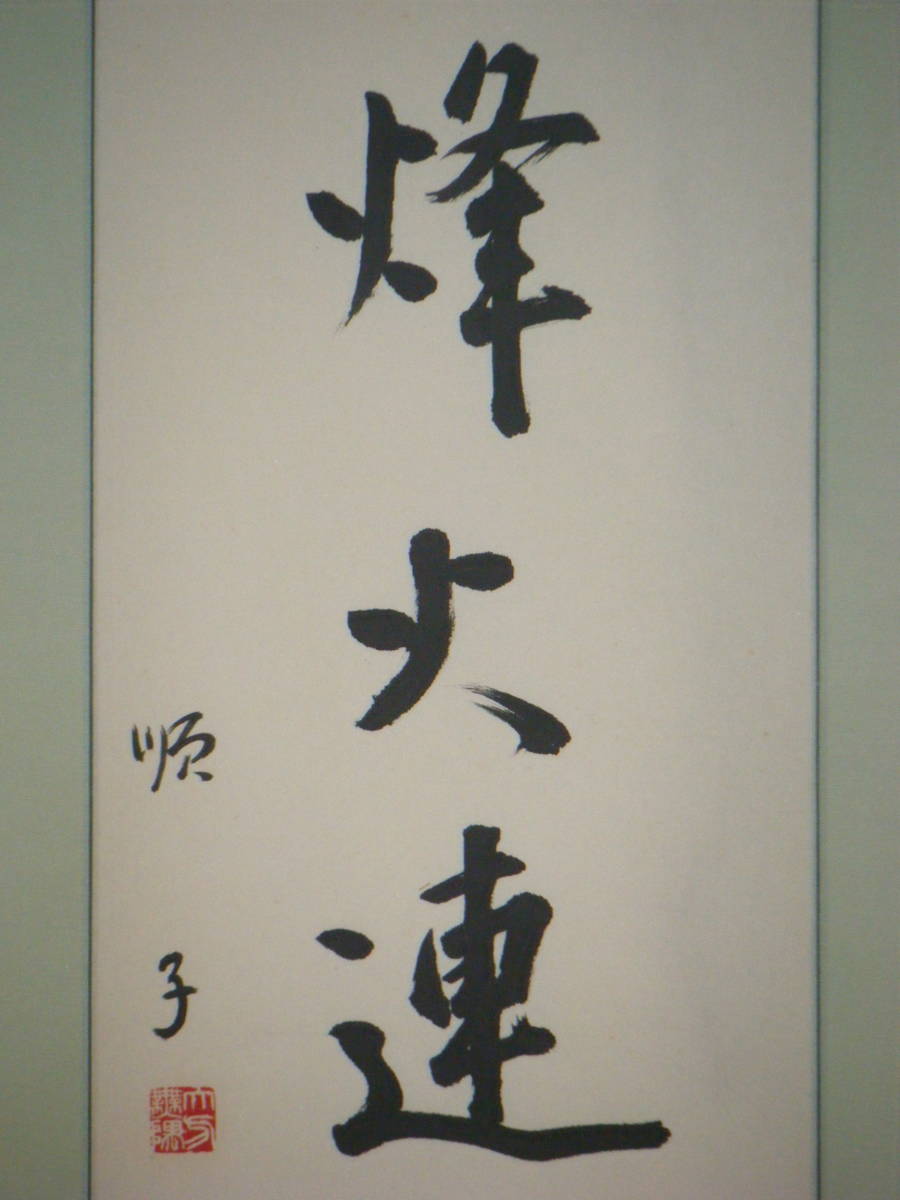 烽火連
順子